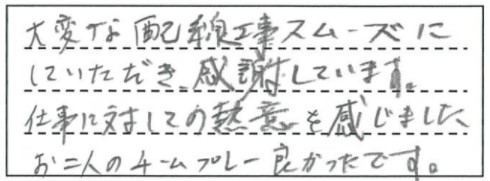 大変な配線工事スムーズに
していただき、感謝しています。
仕事に対しての熱意を感じました、
お二人のチームプレー良かったです。